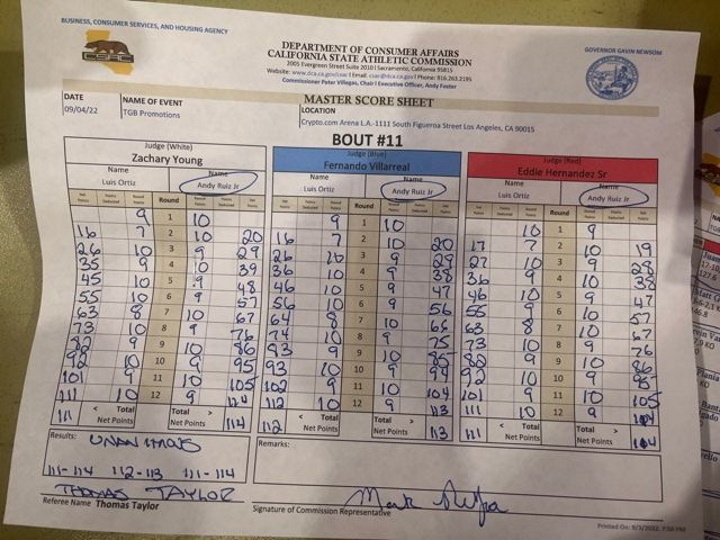 BUSINESS, CONSUMER SERVICES, AND HOUSING AGENCY
GOVERNOR GAVIN NEWSOM
CSAC
DEPARTMENT OF CONSUMER AFFAIRS
CALIFORNIA STATE ATHLETIC COMMISSION
2005 Evergreen Street Suite 2010 | Sacramento, California 95815
Website: www.dca.ca.gov/csac | Email: csac@dca.ca.gov | Phone: 916.263.2195
Commissioner Peter Villegas, Chair | Executive Officer, Andy Foster
MASTER SCORE SHEET
DATE NAME OF EVENT LOCATION
09/04/22 TGB Promotions Crypto.com Arena L.A.-1111 South Figueroa Street Los Angeles, CA 90015
BOUT #11
Judge (White) Judge (Blue) Judge (Red)
Zachary Young Fernando Villarreal Eddie Hernandez Sr
Name Name Name Name Name Name
Luis Ortiz Andy Ruiz Jr Luis Ortiz Andy Ruiz Jr Luis Ortiz Andy Ruiz Jr
Round Round Round
9 1 10 9 1 10 10 1 9
16 7 2 10 20 16 7 2 10 20 17 7 2 10 19
26 10 3 9 29 26 10 3 9 29 27 10 3 9 28
35 9 4 10 39 36 10 4 9 38 36 9 4 10 38
45 10 5 9 48 46 10 5 9 47 46 10 5 9 47
55 10 6 9 57 56 10 6 9 56 55 9 6 10 57
63 8 7 10 67 64 8 7 10 66 63 8 7 10 67
73 10 8 9 76 74 10 8 9 75 73 10 8 9 76
82 9 9 10 86 83 9 9 10 85 82 9 9 10 86
92 10 10 9 95 93 10 10 9 94 92 10 10 9 95
101 9 11 10 105 102 9 11 10 104 101 9 11 10 105
111 10 12 9 114 112 10 12 9 113 111 10 12 9 114
< Total Total > < Total Total > < Total Total >
111 Net Points Net Points 114 112 Net Points Net Points 113 111 Net Points Net Points 114
Results: UNANIMOUS Remarks:
111-114 112-113 111-114
THOMAS TAYLOR
Referee Name Thomas Taylor Signature of Commission Representative
Printed On: 9/3/2022